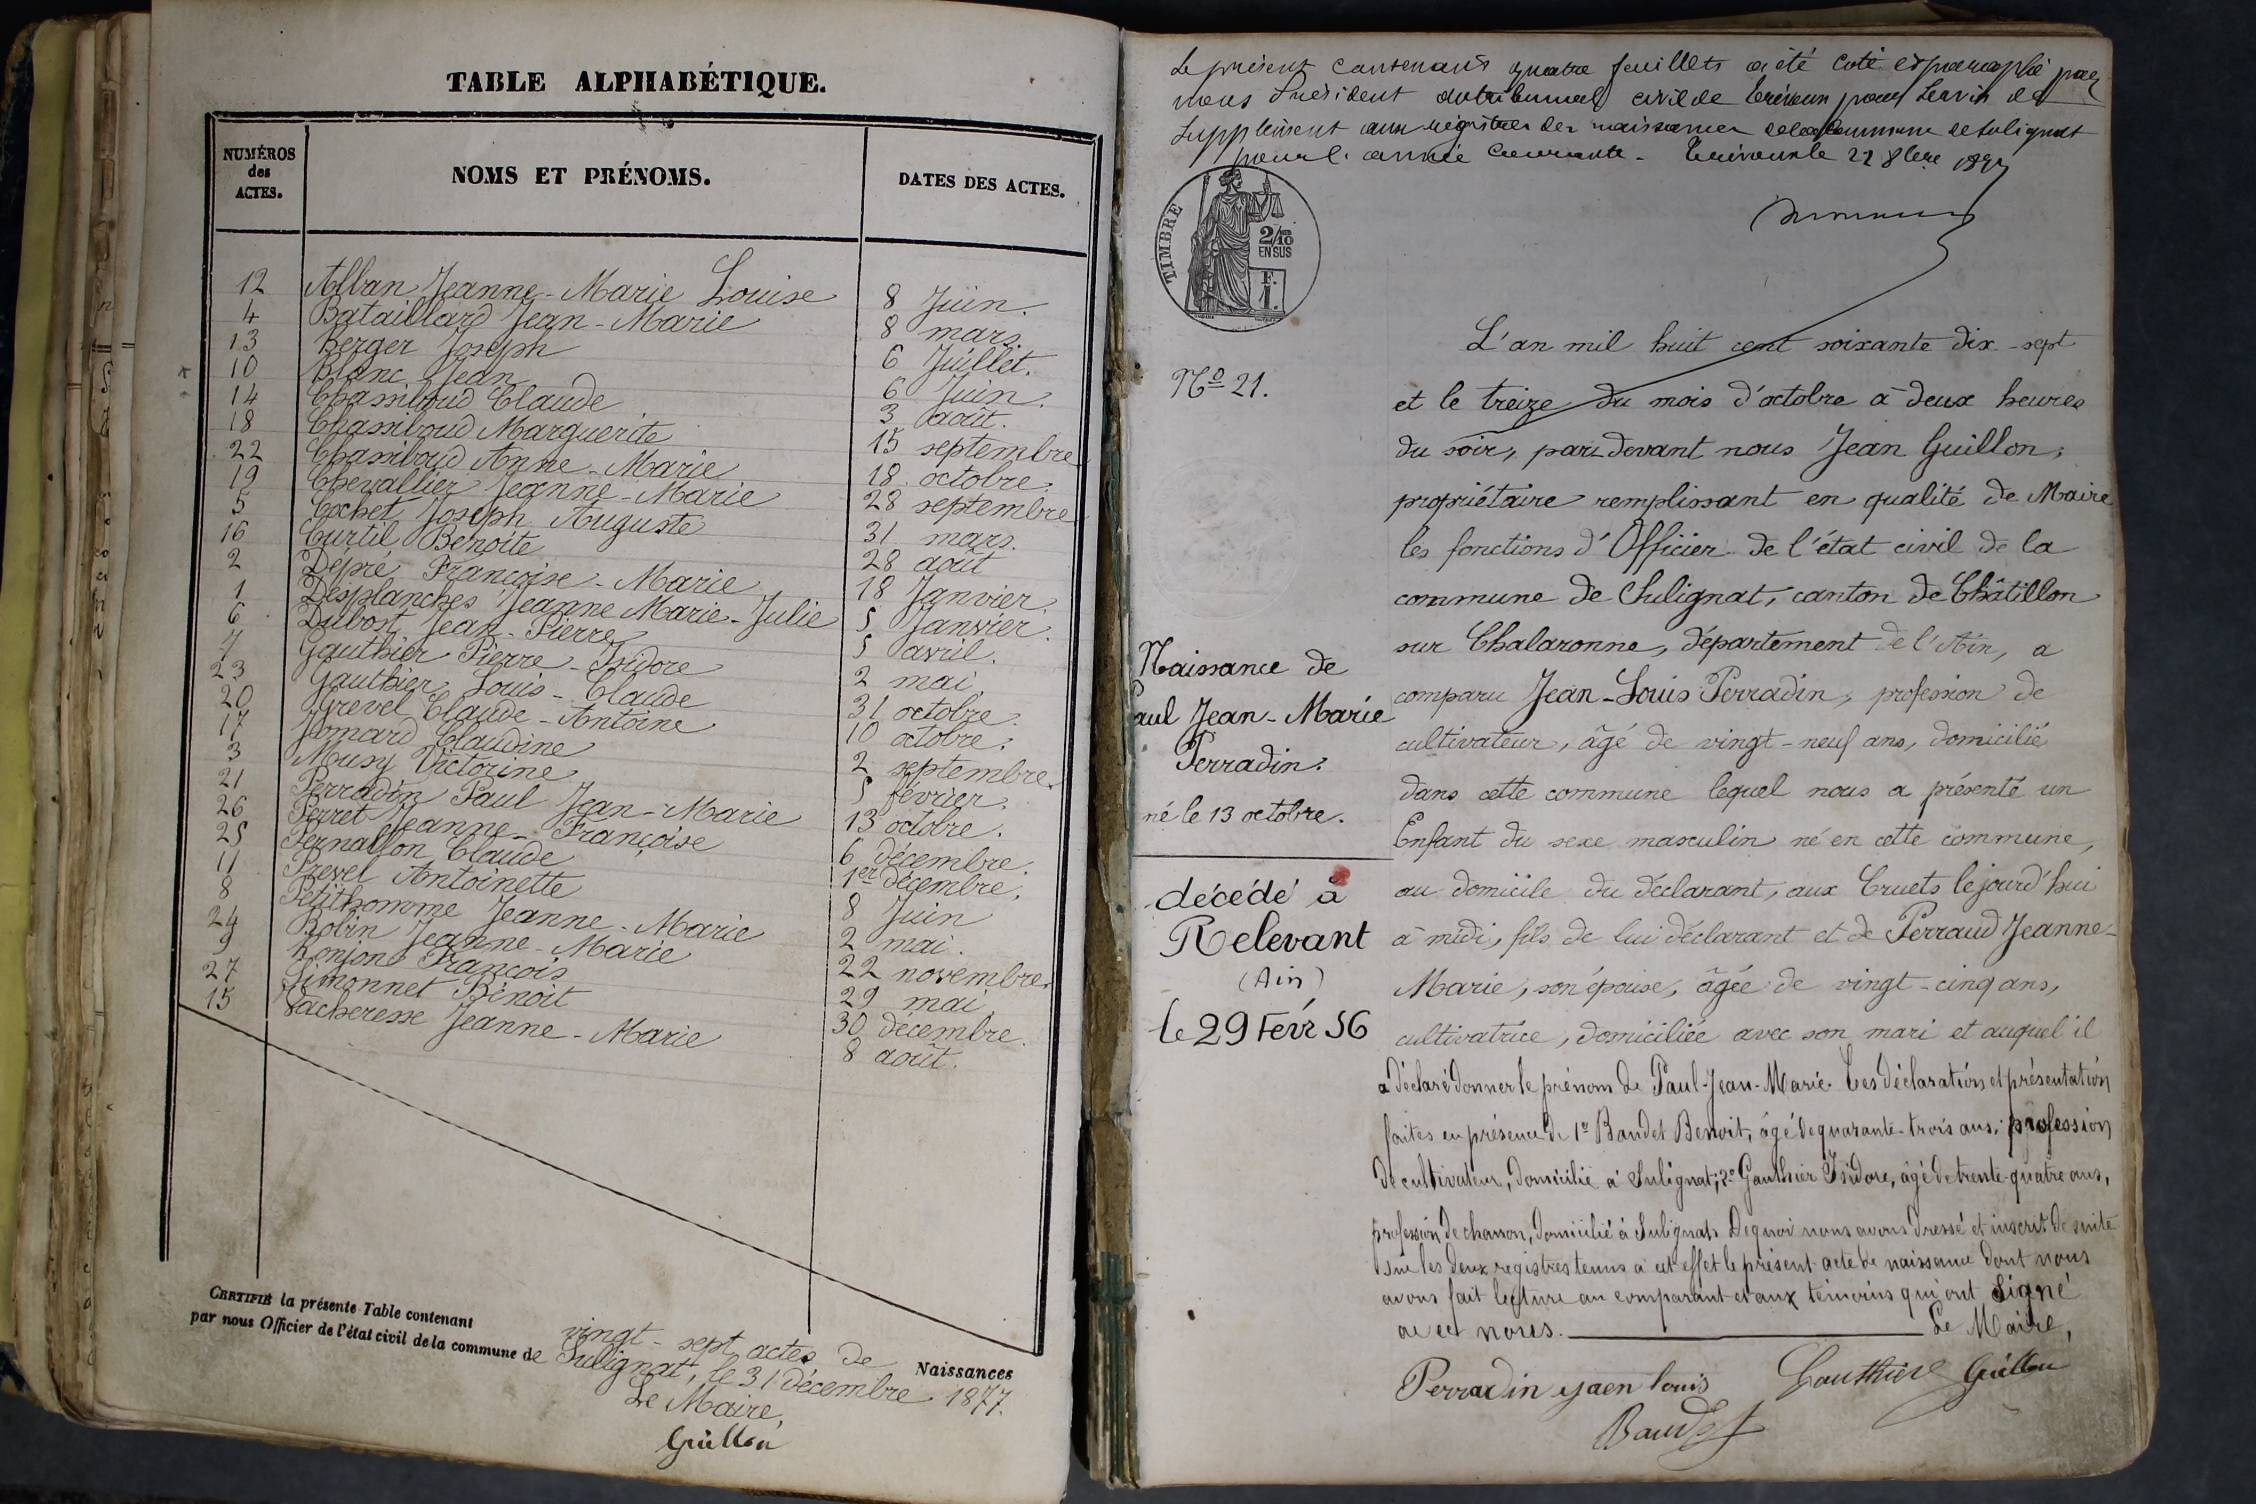 TABLE ALPHABÉTIQUE.
NUMÉROS des ACTES.
NOMS ET PRÉNOMS.
DATES DES ACTES.
12 Alban Jeanne-Marie Louise 8 Juin.
4 Bataillard Jean-Marie 8 mars.
13 Berger Joseph 6 Juillet.
10 Blanc Jean 6 Juin.
14 Chambaud Claude 3 août.
18 Chambaud Marguerite 15 septembre
22 Chambaud Anne-Marie 18 octobre.
19 Chevallier Jeanne-Marie 28 septembre
5 Cochet Joseph Auguste 31 mars.
16 Curtil Benoite 28 août
2 Dépré Françoise-Marie 18 Janvier.
1 Desplanches Jeanne Marie-Julie 5 Janvier.
6 Dubost Jean-Pierre 5 avril.
7 Gauthier Pierre-Isidore 2 mai
23 Gauthier Louis-Claude 31 octobre.
20 Grevel Claude-Antoine 10 octobre.
17 Jomard Claudine 2 septembre.
3 Musy Victorine 5 février.
21 Perradin Paul Jean-Marie 13 octobre.
26 Perret Jeanne-Françoise 6 décembre.
25 Pernallon Claude 1er décembre.
11 Prevel Antoinette 8 Juin
8 Petithomme Jeanne-Marie 2 mai.
24 Robin Jeanne-Marie 22 novembre.
9 Ronjon François 29 mai
27 Simonnet Benoit 30 decembre.
15 Vacheresse Jeanne-Marie 8 août.
CERTIFIÉ la présente Table contenant vingt-sept actes de Naissances
par nous Officier de l'état civil de la commune de Sulignat, le 31 décembre 1877.
Le Maire,
Guillon
Le présent contenant quatre feuillets a été coté et paraphé par
nous Président du tribunal civil de Trévoux pour servir de
supplément aux registres des naissances de la commune de Sulignat
pour l'année courante. Trévoux le 22 8bre 1877
TIMBRE
2/10
EN SUS
F.
1.
No 21.
Naissance de
Paul Jean-Marie
Perradin.
né le 13 octobre.
décédé à
Relevant
(Ain)
le 29 Fevr 56
L'an mil huit cent soixante dix-sept
et le treize du mois d'octobre à deux heures
du soir, par devant nous Jean Guillon,
propriétaire remplissant en qualité de Maire
les fonctions d'Officier de l'état civil de la
commune de Sulignat, canton de Châtillon
sur Chalaronne, département de l'Ain, a
comparu Jean-Louis Perradin, profession de
cultivateur, âgé de vingt-neuf ans, domicilié
dans cette commune lequel nous a présenté un
Enfant du sexe masculin né en cette commune,
au domicile du déclarant, aux Cruets le jourd'hui
à midi, fils de lui déclarant et de Perraud Jeanne-
Marie, son épouse, âgée de vingt-cinq ans,
cultivatrice, domiciliée avec son mari et auquel il
a déclaré donner le prénom de Paul-Jean-Marie. Ces déclaration et présentation
faites en présence de 1º Baudet Benoit, âgé de quarante-trois ans, profession
de cultivateur, domicilié à Sulignat; 2º Gauthier Isidore, âgé de trente-quatre ans,
profession de charron, domicilié à Sulignat. De quoi nous avons dressé et inscrit de suite
sur les deux registres tenus à cet effet le présent acte de naissance dont nous
avons fait lecture au comparant et aux témoins qui ont signé
avec nous. Le Maire,
Perradin yaen louis Gauthier Guillon
Baudet